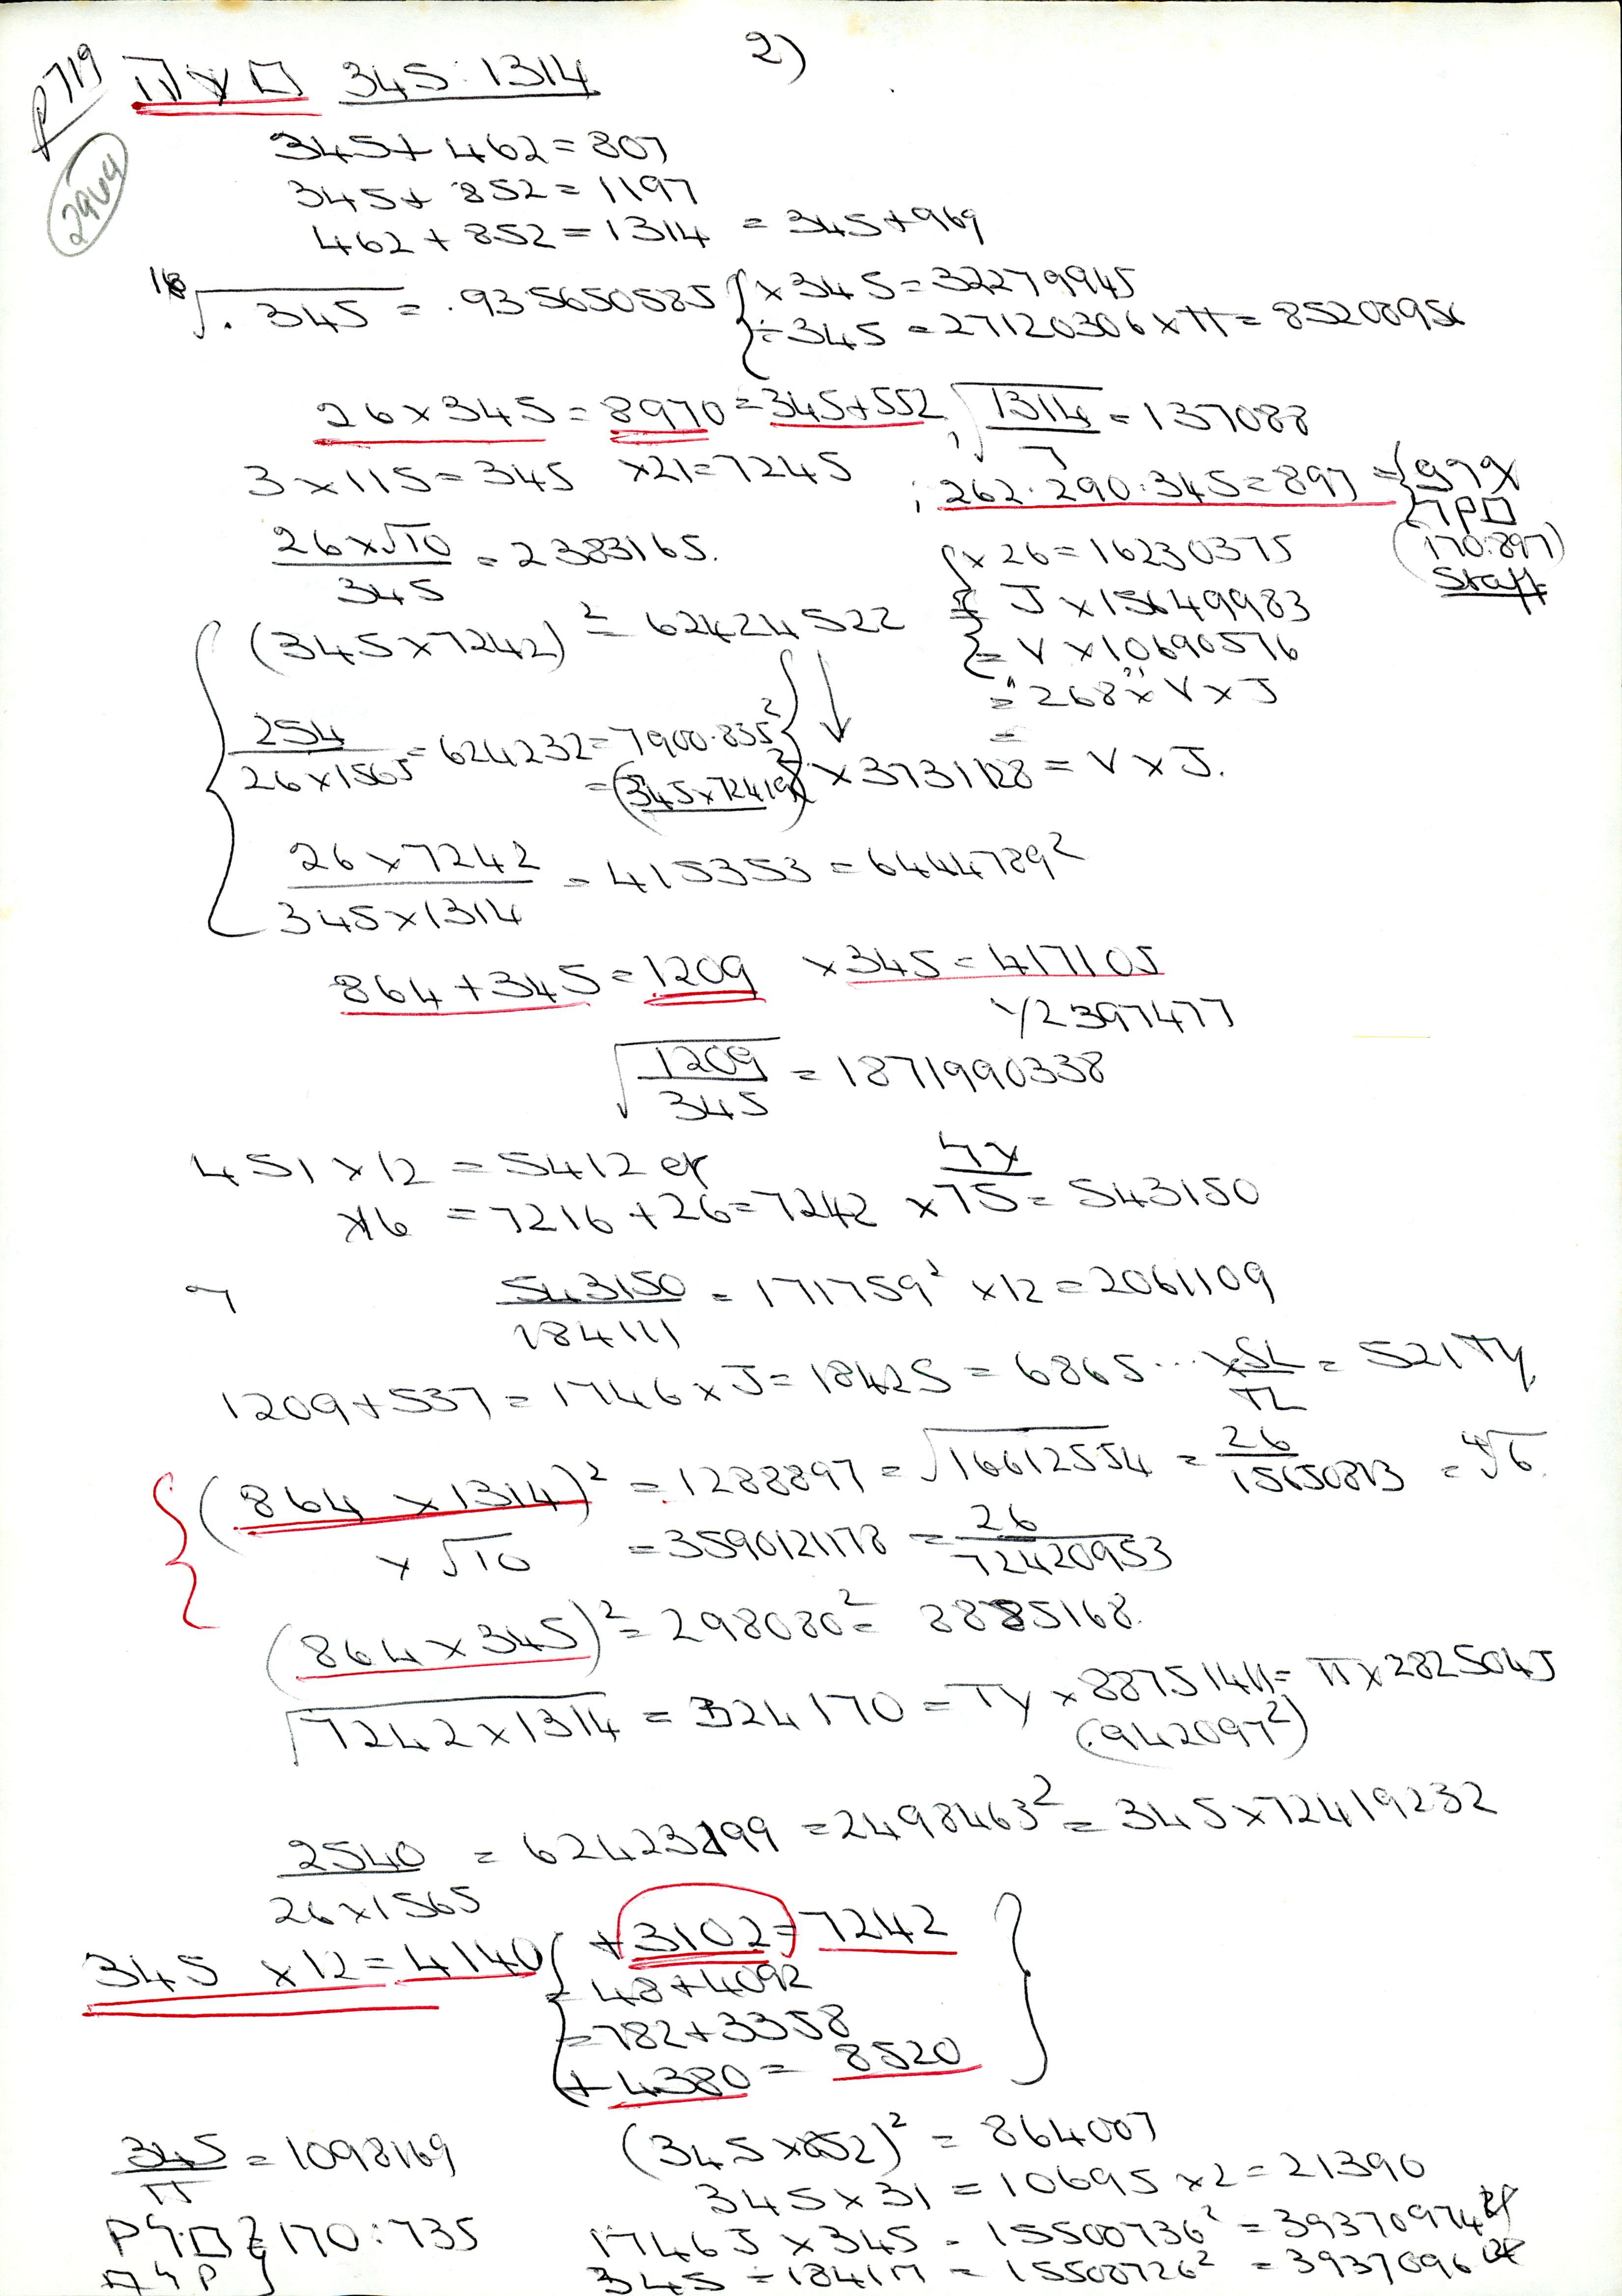 2)
P719
2964
345:1314
345 + 462 = 807
345 + 852 = 1197
462 + 852 = 1314 = 345 + 969
√.345 = .935650585 { × 345 = 32279945
÷ 345 = 27120306 × π = 85200956
26 × 345 = 8970 = 345 + 552, √1314/7 = 137088
3 × 115 = 345 × 21 = 7245 ; 262.290.345 = 897
(170:897)
Staff
26 × √10 / 345 = 2383165.
(345 × 7242)² = 62424522
× 26 = 16230375
J × 15649983
= V × 10690576
= "268" × V × J
=
254 / 26 × 1565 = 624232 = 7900.835²
= (345 × 72419)² × 3731128 = V × J.
26 × 7242 / 345 × 1314 = 415353 = 6444789²
864 + 345 = 1209 × 345 = 417105
√2397477
√1209/345 = 1871990338
451 × 12 = 5412 er
×16 = 7216 + 26 = 7242 × 75 = 543150
543150 / 184111 = 171759² × 12 = 2061109
1209 + 537 = 1746 × J = 18425 = 6865 ... = 521
(864 × 1314)² = 1288897 = √16612554 = 26 / 15650813 = ⁴√6.
× √10 = 3590121178 = 26 / 72420953
(864 × 345)² = 298080² = 8885168.
√7242 × 1314 = 324170 = TY × 88751411 = π × 2825045
(.942097²)
2540 / 26 × 1565 = 62423199 = 2498463² = 345 × 72419232
345 × 12 = 4140 { + 3102 = 7242
= 48 + 4092
= 782 + 3358
+ 4380 = 8520
345 / π = 1098169
(345 × 852)² = 864007
345 × 31 = 10695 × 2 = 21390
170:735
1746J × 345 = 15500736² = 39370974
345 ÷ 18417 = 15508726² = 3937096